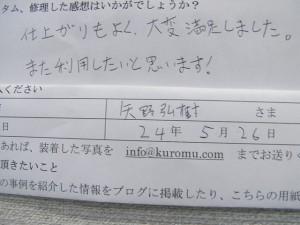 タム、修理した感想はいかがでしょうか?
仕上がりもよく、大変満足しました。
また利用したいと思います!
ください
矢野弘樹 さま
日 24年 5月 26日
あれば、装着した写真を info@kuromu.com までお送りく
頂きたいこと
の事例を紹介した情報をブログに掲載したり、こちらの用紙